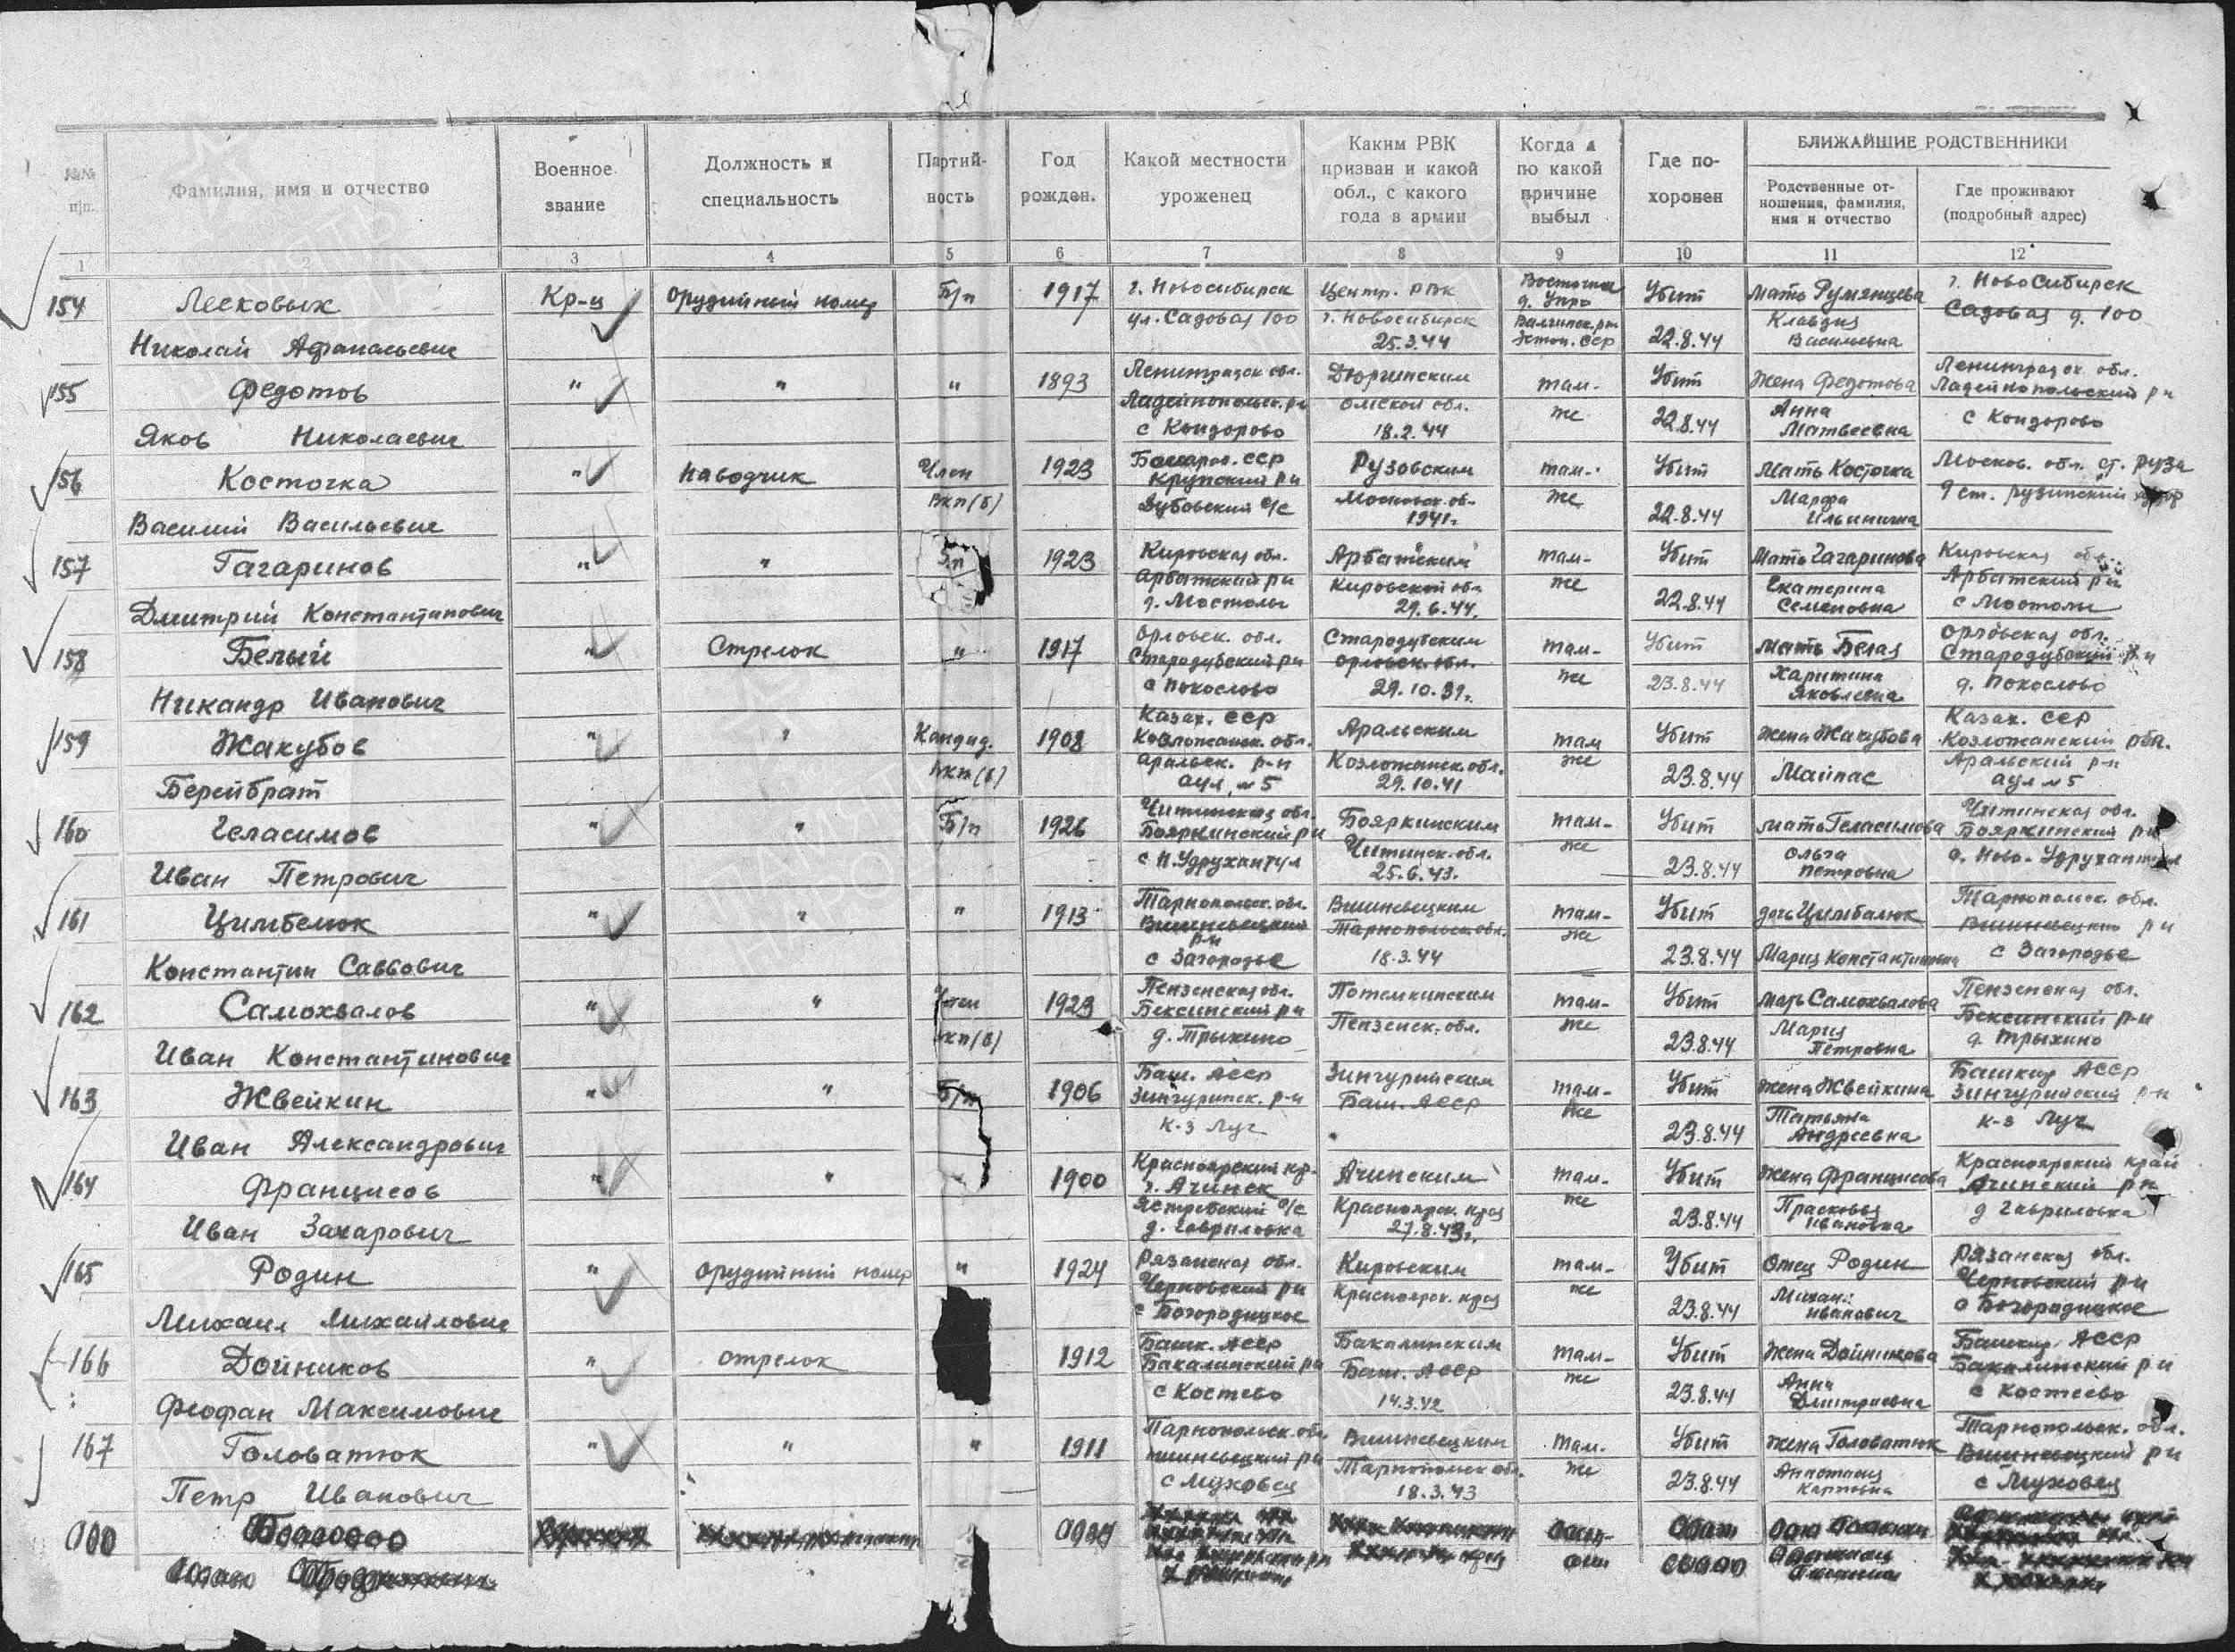 №№ п|п.
Фамилия, имя и отчество
Военное звание
Должность и специальность
Партий-ность
Год рожден.
Какой местности уроженец
Каким РВК призван и какой обл., с какого года в армии
Когда и по какой причине выбыл
Где по-хоронен
БЛИЖАЙШИЕ РОДСТВЕННИКИ
Родственные от-ношения, фамилия, имя и отчество
Где проживают (подробный адрес)
1 2 3 4 5 6 7 8 9 10 11 12
154 Лесковых Кр-ц орудийный номер Б/п 1917 г. Новосибирск Центр. РВК Убит мать Румянцева г. Новосибирск
ул. Садовая 100 г. Новосибирск Эстон. ССР Клавдия Садовая д. 100
Николай Афанасьевич 25.3.44 22.8.44 Васильевна
155 Федотов " " " 1893 Ленинградск обл. там- Убит жена Федотова Ленинградск. обл.
Ладейнопольск. рн омской обл. же Анна Ладейнопольский рн
Яков Николаевич с Кондорово 18.2.44 22.8.44 Матвеевна с Кондорово
156 Косточка " наводчик Член 1923 Рузовским там- Убит Мать Косточка Москов. обл. ст. Руза
Крупский рн вкп(б) Московск. об- же Марфа
Василий Васильевич Дубовский с/с 1941г. 22.8.44 Ильинична
157 Гагаринов " " Б/п 1923 Кировская обл. Арбатским там- Убит Мать Гагаринова Кировская обл.
Арбатский рн Кировской обл же Екатерина Арбатский рн
Дмитрий Константинович д. Мостолы 29.6.44. 22.8.44 Семеновна с Мостолы
158 Белый " Стрелок " 1917 Орловск. обл. Стародубским там- Убит Мать Белая Орловская обл.
Стародубский рн орловск. обл. же Харитина Стародубский рн
Никандр Иванович с Покослово 29.10.39г. 23.8.44 Яковлевна д. Покослово
159 Жакубов " " Кандид. 1908 Казах. ССР Аральским там Убит жена Жакубова Казах. ССР
вкп(б) аральск. р-н же Аральский р-н
Берейбрат аул №5 29.10.41 23.8.44 Майпас аул №5
160 Геласимов " " Б/п 1926 Читинская обл. Бояркинским там- Убит мать Геласимова Читинская обл.
Бояркинский рн Читинск. обл. же Ольга Бояркинский рн
Иван Петрович с Н. Удрухангул 25.6.43. 23.8.44 Петровна
161 Цимбелюк " " " 1913 Тарнопольск. обл. Вишневецким там- Убит дочь Цимбалюк Тарнопольск. обл.
Вишневецкий рн Тарнопольск обл. же Вишневецкий рн
Константин Саввович с Загородье 18.3.44 23.8.44 Мария Константиновна с Загородье
162 Самохвалов " " Член 1923 Пензенская обл. Потемкинским там- Убит мать Самохвалова Пензенская обл.
вкп(б) Бексинский рн Пензенск. обл. же Мария Бексинский р-н
Иван Константинович д. Трыхино 23.8.44 Петровна д. Трыхино
163 Жвейкин " " Б/п 1906 Баш. АССР Зингурийским там- Убит жена Жвейкина Башкир АССР
Баш. АССР же Татьяна Зингурийский р-н
Иван Александрович к-з Луч 23.8.44 Андреевна к-з Луч
164 Францисов " " 1900 Красноярский кр. Ачинским там- Убит жена Францисова Красноярский край
г. Ачинск Красноярск. края же Прасковья Ачинский рн
Иван Захарович д. Гавриловка 27.8.43г. 23.8.44 Ивановна д Гавриловка
165 Родин " орудийный номер " 1924 Рязанская обл. Кировским там- Убит Отец Родин Рязанская обл.
Черновский рн Красноярск. края же Михаил Черновский рн
Михаил Михайлович с Богородицкое 23.8.44 Иванович с Богородицкое
166 Дойников " стрелок 1912 Башк. АССР Бакалинским там- Убит Жена Дойникова Башкир. АССР
Бакалинский рн Баш. АССР же Анна Бакалинский рн
Феофан Максимович с Костево 14.3.42 23.8.44 Дмитриевна с Костеево
167 Головатюк " " " 1911 Тарнопольск. обл Вишневецким там- Убит жена Головатюк Тарнопольск. обл.
вишневецкий рн Тарнопольск обл. же Анастасия Вишневецкий рн
Петр Иванович с Муховец 18.3.43 23.8.44 Карповна с Муховец